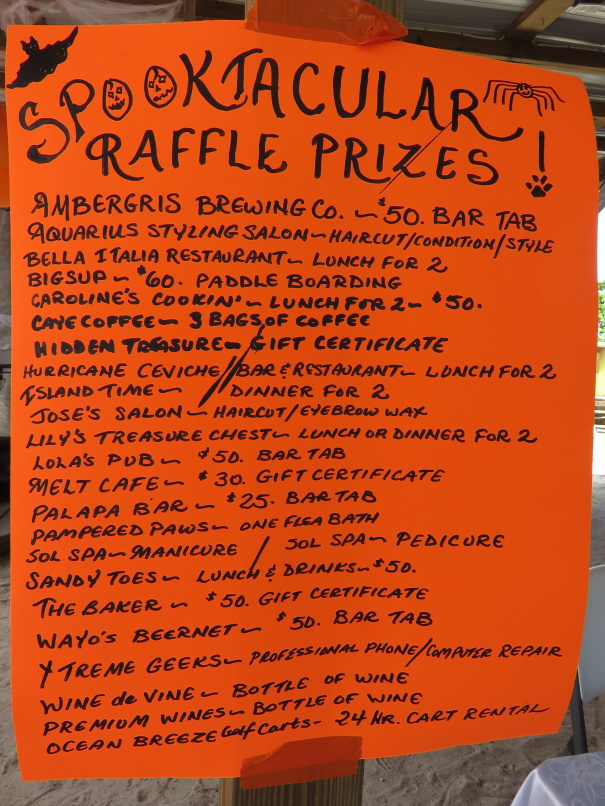 SPOOKTACULAR
RAFFLE PRIZES!
AMBERGRIS BREWING CO. ~ $50. BAR TAB
AQUARIUS STYLING SALON ~ HAIRCUT/CONDITION/STYLE
BELLA ITALIA RESTAURANT ~ LUNCH FOR 2
BIGSUP ~ $60. PADDLE BOARDING
CAROLINE'S COOKIN' ~ LUNCH FOR 2 ~ $50.
CAYE COFFEE ~ 3 BAGS OF COFFEE
HIDDEN TREASURE ~ GIFT CERTIFICATE
HURRICANE CEVICHE BAR & RESTAURANT ~ LUNCH FOR 2
ISLAND TIME ~ DINNER FOR 2
JOSE'S SALON ~ HAIRCUT/EYEBROW WAX
LILY'S TREASURE CHEST ~ LUNCH OR DINNER FOR 2
LOLA'S PUB ~ $50. BAR TAB
MELT CAFE ~ $30. GIFT CERTIFICATE
PALAPA BAR ~ $25. BAR TAB
PAMPERED PAWS ~ ONE FLEA BATH
SOL SPA ~ MANICURE / SOL SPA ~ PEDICURE
SANDY TOES ~ LUNCH & DRINKS ~ $50.
THE BAKER ~ $50. GIFT CERTIFICATE
WAYO'S BEERNET ~ $50. BAR TAB
XTREME GEEKS ~ PROFESSIONAL PHONE/COMPUTER REPAIR
WINE de VINE ~ BOTTLE OF WINE
PREMIUM WINES ~ BOTTLE OF WINE
OCEAN BREEZE Golf Carts - 24 HR. CART RENTAL